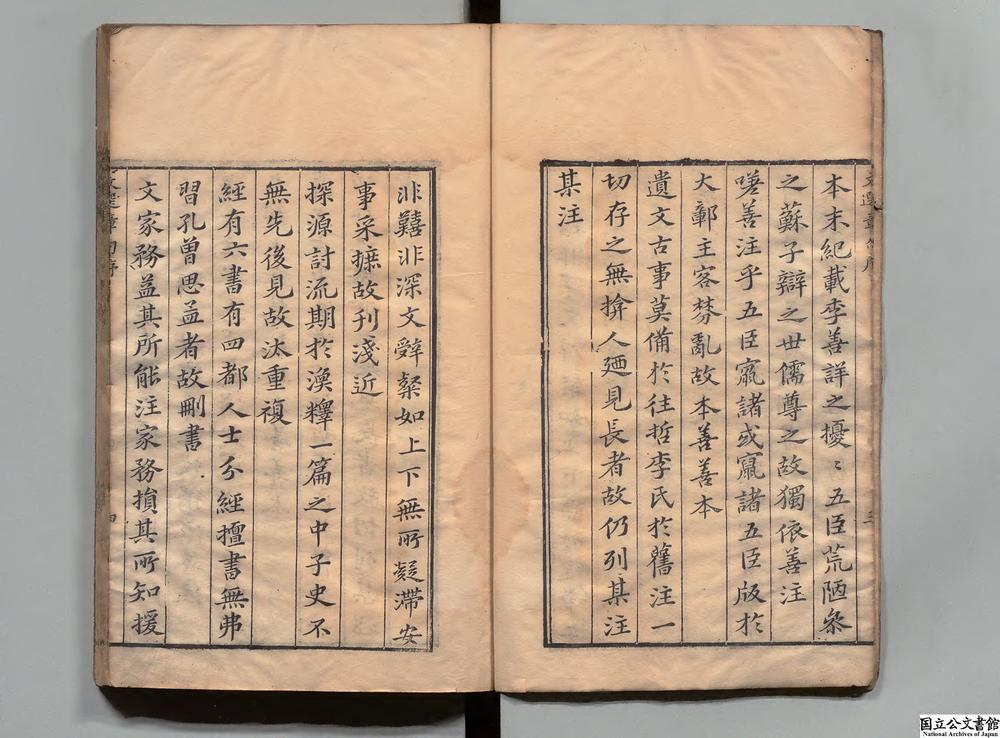 文選章句序
三
本末紀載李善詳之擾〻五臣荒陋叅
之蘇子辯之世儒尊之故獨依善注
嗟善注乎五臣竄諸或竄諸五臣版於
大鄣主客棼亂故本善善本
遺文古事莫備於往哲李氏於舊注一
切存之無揜人廼見長者故仍列某注
某注
非囏非深文辤粲如上下無所凝滯安
事采摭故刊淺近
探源討流期於渙釋一篇之中子史不
無先後見故汰重複
經有六書有四都人士分經擅書無弗
習孔曾思孟者故刪書
文家務益其所能注家務損其所知援
文選章句序
四
国立公文書館
National Archives of Japan